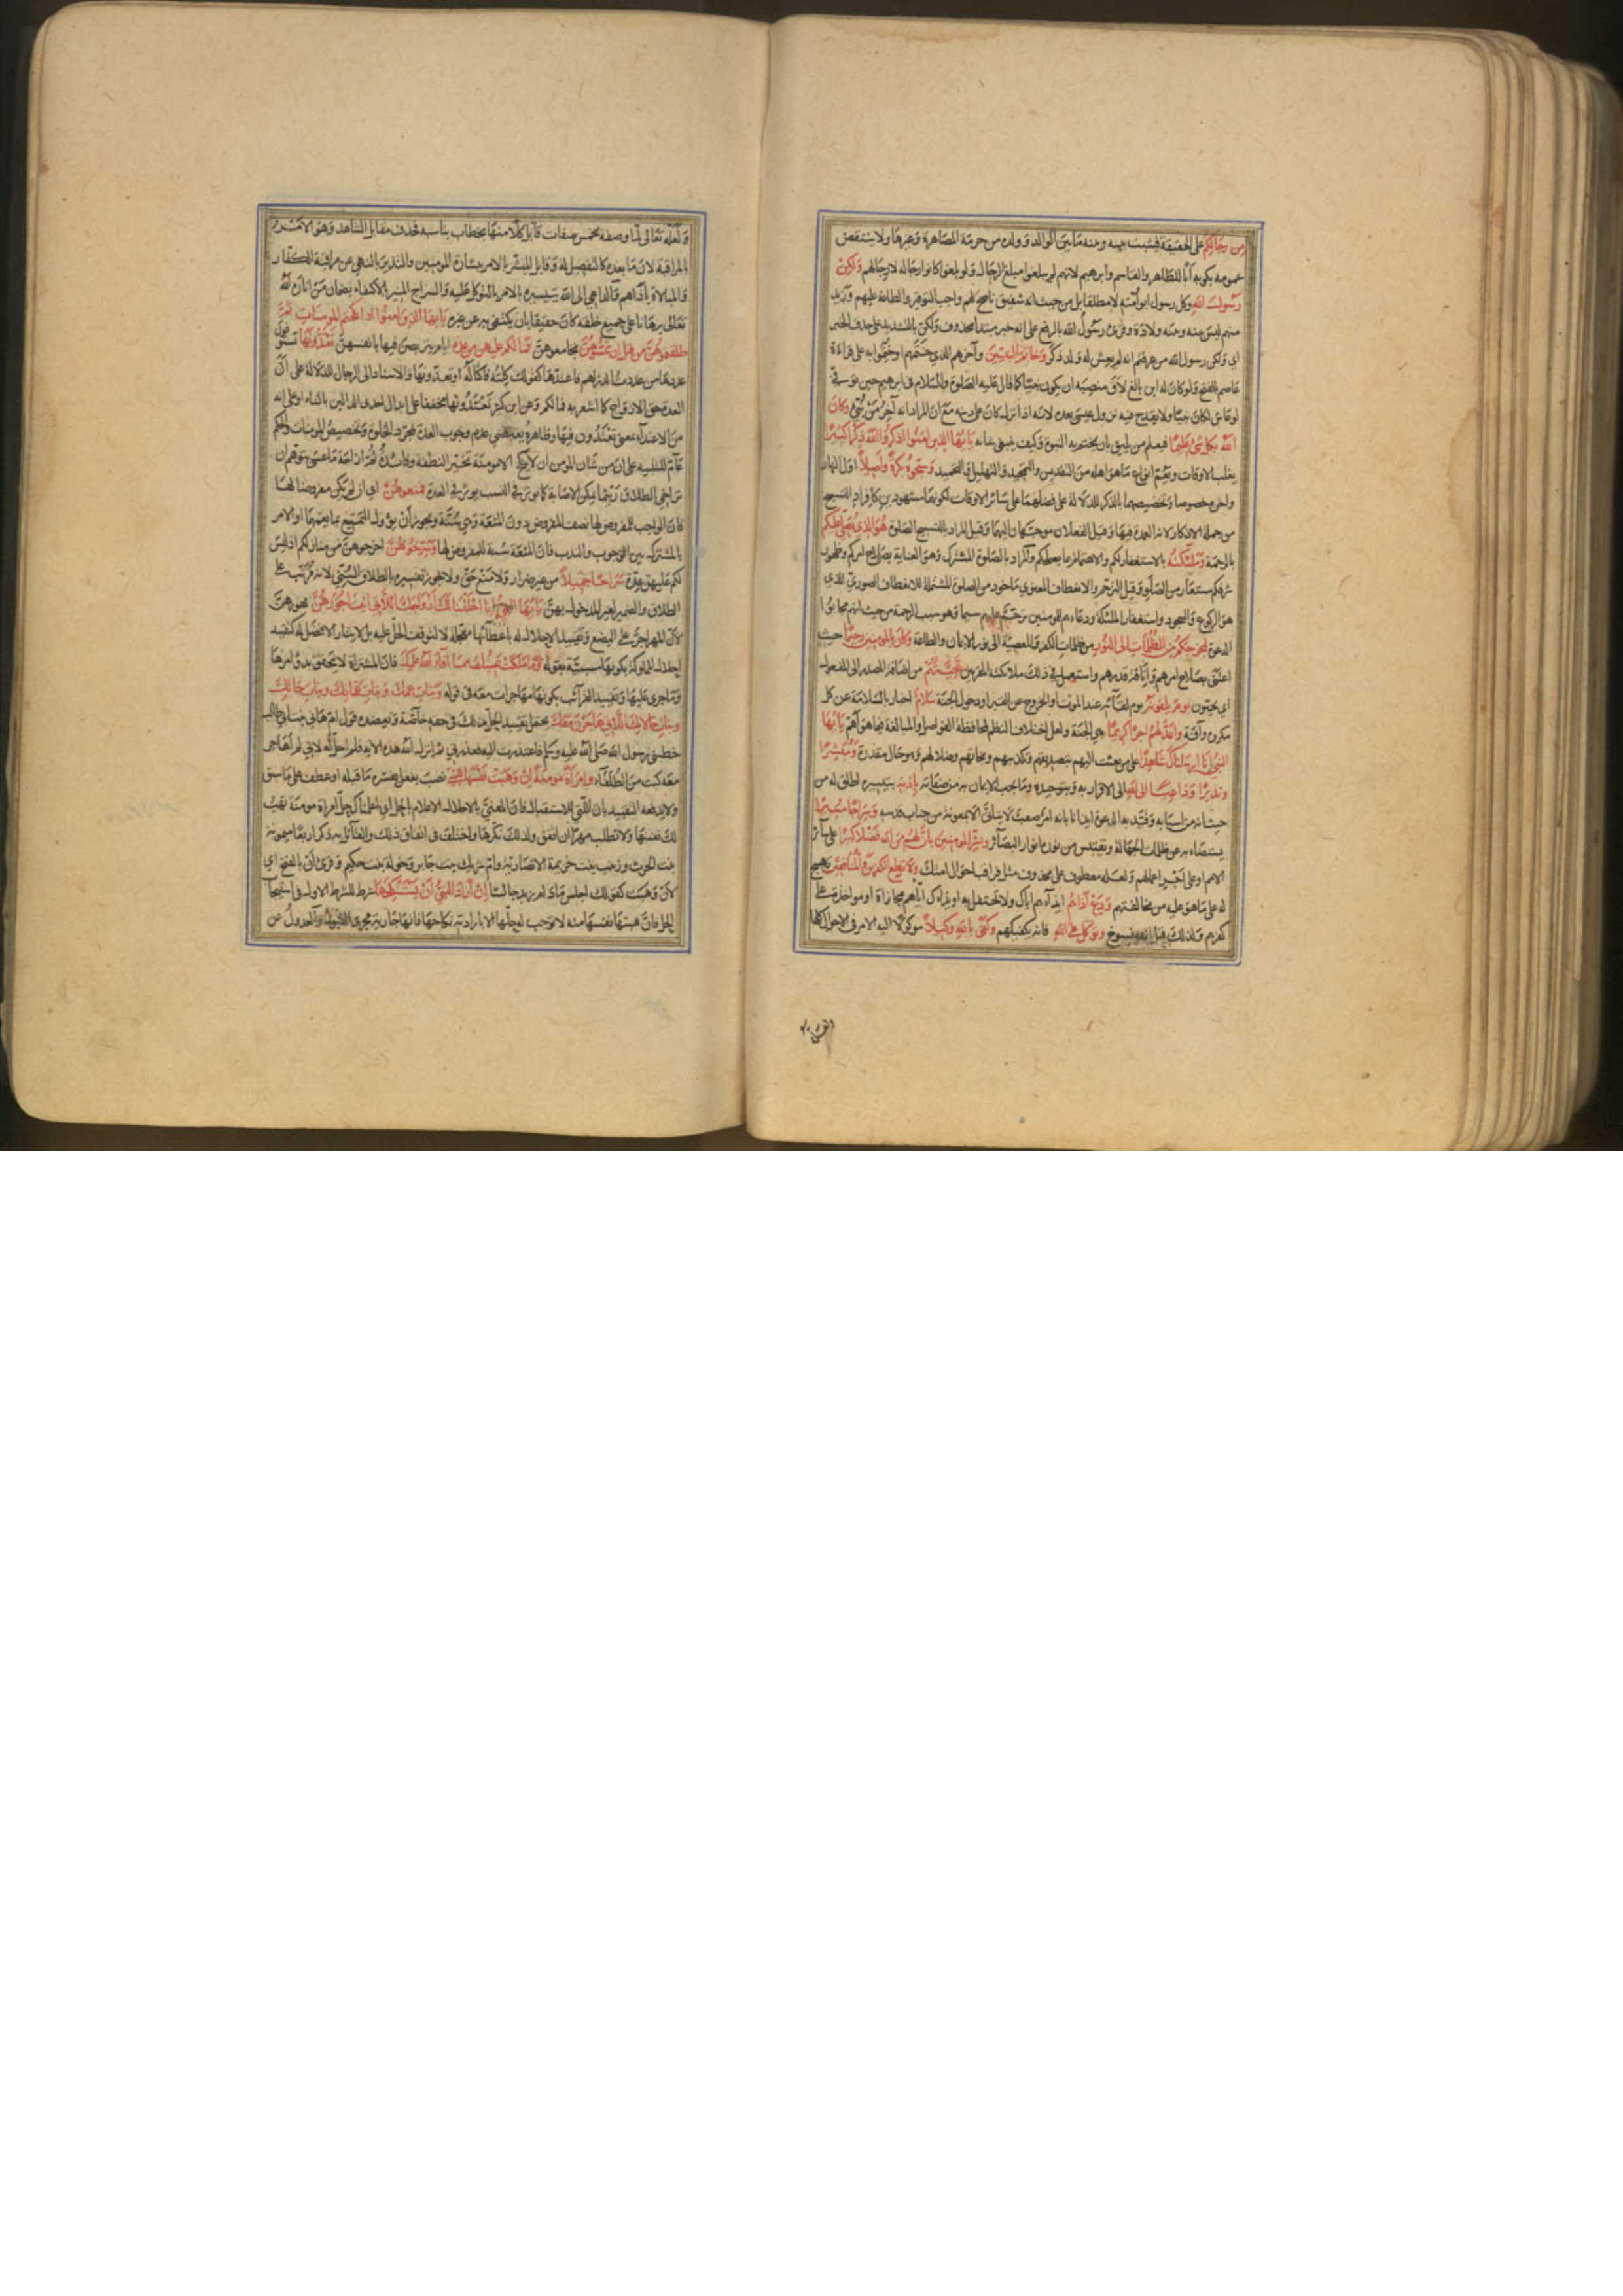 من رجالكم على الحقيقة فيثبت بينه وبينه ما بين الوالد وولده من حرمة المصاهرة وغيرها ولا ينتقض
عمومه بكونه أبا للطاهر والقاسم وابرهيم لانهم لم يبلغوا مبلغ الرجال ولو بلغوا كانوا رجاله لا رجالهم ولكن
رسول الله وكل رسول ابو أمته لا مطلقا بل من حيث انه شفيق ناصح لهم واجب التوقير والطاعة عليهم وزيد
منهم ليس بينه وبينه ولادة وقرئ رسول الله بالرفع على انه خبر مبتدا محذوف ولكن بالتشديد على حذف الخبر
اي ولكن رسول الله من عرفتم انه لم يعش له ولد ذكر وخاتم النبيين وآخرهم الذي ختمهم او ختموا به على قراءة
عاصم بالفتح ولو كان له ابن بالغ لاق منصبه ان يكون نبيا كما قال عليه الصلوة والسلام في ابرهيم حين توفي
لو عاش لكان نبيا ولا يقدح فيه نزول عيسى بعده لانه اذا نزل كان على دينه مع ان المراد انه آخر من نبئ وكان
الله بكل شئ عليما فيعلم من يليق بان يختم به النبوة وكيف ينبغي شانه يا ايها الذين امنوا اذكروا الله ذكرا كثيرا
يغلب الاوقات ويعم انواع ما هو اهله من التقديس والتمجيد والتهليل والتحميد وسبحوه بكرة وأصيلا اول النهار
واخره خصوصا وتخصيصهما بالذكر للدلالة على فضلهما على سائر الاوقات لكونهما مشهودين كافراد التسبيح
من جملة الاذكار لانه العمدة فيها وقيل الفعلان موجهان اليهما وقيل المراد بالتسبيح الصلوة هو الذي يصلي عليكم
بالرحمة وملئكته بالاستغفار لكم والاهتمام بما يصلحكم والمراد بالصلوة المشترك وهو العناية بصلاح امركم وظهور
شرفكم مستعار من الصلو وقيل الترحم والانعطاف المعنوي ماخوذ من الصلوة المشتملة على الانعطاف الصوري الذي
هو الركوع والسجود واستغفار الملئكة ودعاءهم للمومنين ترحم عليهم سيما وهو سبب للرحمة من حيث انهم مجابوا
الدعوة ليخرجكم من الظلمات الى النور من ظلمات الكفر والمعصية الى نور الايمان والطاعة وكان بالمومنين رحيما حيث
اعتنى بصلاح امرهم وانافة قدرهم واستعمل في ذلك ملائكته المقربين تحيتهم من اضافة المصدر الى المفعول
اي يحيون يوم يلقونه يوم لقائه عند الموت او الخروج عن القبر او دخول الجنة سلام اخبار بالسلامة عن كل
مكروه وآفة واعد لهم اجرا كريما هي الجنة ولعل اختلاف النظم لمحافظة الفواصل والمبالغة فيما هو اهم يا ايها
النبي انا ارسلناك شاهدا على من بعثت اليهم بتصديقهم وتكذيبهم ونجاتهم وضلالهم وهو حال مقدرة ومبشرا
ونذيرا وداعيا الى الله الى الاقرار به وبتوحيده وما يجب الايمان به من صفاته باذنه بتيسيره اطلق له من
حيث انه من اسبابه وقيد به الدعوة ايذانا بانه امر صعب لا يتاتى الا بمعونة من جناب قدسه وسراجا منيرا
يستضاء به عن ظلمات الجهالة ويقتبس من نوره انوار البصائر وبشر المومنين بأن لهم من الله فضلا كبيرا على سائر
الامم او على اجر اعمالهم ولعله معطوف على محذوف مثل فراقب احوال امتك ولا تطع الكفرين والمنافقين تهييج
له على ما هو عليه من مخالفتهم ودع أذاهم ايذآءهم اياك ولا تحتفل به او ايذاءك اياهم مجازاة او مواخذة على
كفرهم ولذلك قيل انه منسوخ وتوكل على الله فانه يكفيكهم وكفى بالله وكيلا موكولا اليه الامر في الاحوال كلها
ولعله تعالى لما وصفه بخمس صفات قابل كلا منها بخطاب يناسبه فحذف مقابل الشاهد وهو الامر
بالمراقبة لان ما بعده كالتفصيل له وقابل المبشر بالامر ببشارة المومنين والنذير بالنهي عن مراقبة الكفار
والمبالاة باذاهم والداعي الى الله بتيسيره بالامر بالتوكل عليه والسراج المنير بالاكتفاء به فان من اناره الله
تعالى برهانا على جميع خلقه كان حقيقا بان يكتفى به عن غيره يا ايها الذين امنوا اذا نكحتم المومنات ثم
طلقتموهن من قبل ان تمسوهن تجامعوهن فما لكم عليهن من عدة ايام يتربصن فيها بانفسهن تعتدونها تستوفون
عددها من عددت الدراهم فاعتدها كقولك كلته فاكتاله او تعدونها والاسناد الى الرجال للدلالة على ان
العدة حق الازواج كما اشعر به فما لكم وعن ابن كثير تعتدونها مخففا على ابدال احدى الدالين بالتاء او على انه
من الاعتداء بمعنى تعتدون فيها وظاهره يقتضي عدم وجوب العدة بمجرد الخلوة وتخصيص المومنات والحكم
عام للتنبيه على ان من شان المومن ان لا ينكح الا مومنة تخيرا لنطفته وفائدة ثم ازاحة ما عسى يتوهم ان
تراخي الطلاق ريثما يمكن الاصابة كما يوثر في النسب يوثر في العدة فمتعوهن اي ان لم يكن مفروضا لها
فان الواجب للمفروض لها نصف المفروض دون المتعة وهي سنة ويجوز أن يؤول التمتيع بما يعمهما او الامر
بالمشترك بين الوجوب والندب فان المتعة سنة للمفروض لها وسرحوهن اخرجوهن من منازلكم اذ ليس
لكم عليهن عدة سراحا جميلا من غير ضرار ولا منع حق ولا يجوز تفسيره بالطلاق السني لانه مرتب على
الطلاق والضمير لغير المدخول بهن يا ايها النبي انا احللنا لك أزواجك اللاتي آتيت اجورهن مهورهن
لان المهر اجر على البضع وتقييد الاحلال له باعطائها معجلة لا لتوقف الحل عليه بل لايثار الافضل له كتقييد
احلال المملوكة بكونها مسبية بقوله وما ملكت يمينك مما أفاء الله عليك فان المشتراة لا يتحقق بدو امرها
وما جرى عليها وتقييد القرائب بكونها مهاجرات معه في قوله وبنات عمك وبنات عماتك وبنات خالك
وبنات خالاتك اللاتي هاجرن معك يحتمل تقييد الحل بذلك في حقه خاصة ويعضده قول ام هاني بنت ابي طالب
خطبني رسول الله صلى الله عليه وسلم فاعتذرت اليه فعذرني ثم انزل الله هذه الاية فلم احل له لاني لم أهاجر
معه كنت من الطلقاء وامرأة مومنة إن وهبت نفسها للنبي نصب بفعل يفسره ما قبله او عطف على ما سبق
ولا يدفعه التقييد بان التي للاستقبال فان المعني بالاحلال الاعلام بالحل اي اعلمناك حل امراة مومنة تهب
لك نفسها ولا تطلب مهرا ان اتفق ولذلك نكرها واختلف في اتفاق ذلك والقائل به ذكر اربعا ميمونة
بنت الحرث وزينب بنت خزيمة الانصارية وام شريك بنت جابر وخولة بنت حكيم وقرئ أن بالفتح اي
لأن وهبت كقولك اجلس ما دام زيد جالسا إن أراد النبي أن يستنكحها شرط للشرط الاول في استيجاب
الحل فان هبتها نفسها منه لا توجب له حلها الا بارادته نكاحها فانها جارية مجرى القبول والعدول عن